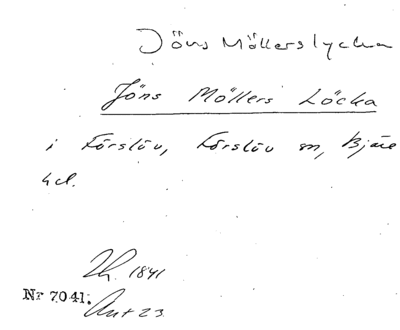 Jöns Möllerslycka
Jöns Möllers Löcka
i Förslöv, Förslöv sn, Bjäre
hd.
Lh. 1841
Nr 7041.
Ant 23.